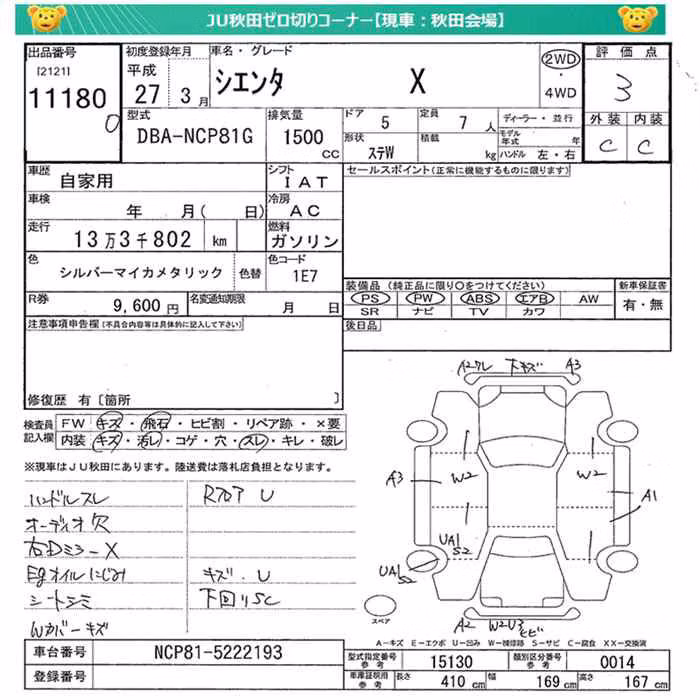 JU秋田ゼロ切りコーナー【現車：秋田会場】
出品番号 初度登録年月 車名・グレード 評価点
[2121] 11180 0
平成 27 3月
シエンタ X
2WD・4WD
3
外装 内装
C C
型式 DBA-NCP81G
排気量 1500 CC
ドア 5 定員 7 人 ディーラー・並行
形状 ステW 積載 kg モデル年式 年
ハンドル 左・右
車歴 自家用 シフト IAT
セールスポイント(正常に機能するものに限ります)
車検 年 月( 日) 冷房 AC
走行 13万3千802 km 燃料 ガソリン
色 シルバーマイカメタリック 色替 色コード 1E7
装備品(純正品に限り○をつけてください) 新車保証書
PS PW ABS エアB AW 有・無
SR ナビ TV カワ
R券 9,600円 名変通知期限 月 日
後日品
注意事項申告欄(不具合内容等は具体的に記入して下さい)
修復歴 有〔箇所 〕
検査員記入欄
FW キズ・飛石・ヒビ割・リペア跡・×要
内装 キズ・汚レ・コゲ・穴・スレ・キレ・破レ
※現車はJU秋田にあります。陸送費は落札店負担となります。
ハンドルスレ RフロアU
オーディオ穴
右Dミラ-X
Egオイルにじみ キズ.U
シートシミ 下回りSC
Wカバーキズ
下キズ A3
A3 W2 W2 A1
UA1 S2
UA1 S2
A2 W2U3 ヒビ
スペア
A-キズ E-エクボ U-凹み W-補修跡 S-サビ C-腐食 XX-交換済
車台番号 NCP81-5222193
登録番号
型式指定番号 参考 15130 類別区分番号 参考 0014
車庫証明用 参考 長さ 410 cm 幅 169 cm 高さ 167 cm